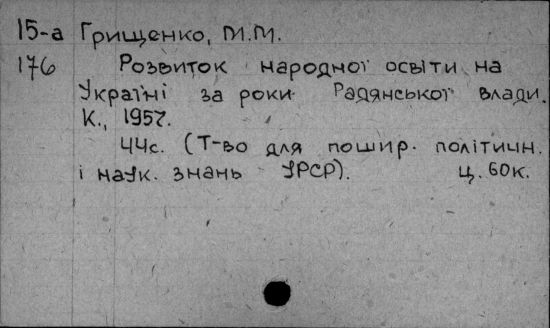 15-а Грищенко, М.М.
176 Розвиток народної освіти на
Україні за роки Радянської влади.
К., 1957.
44с. (Т-во для пошир. політичн.
і наук. знань УРСР). ц. 60к.